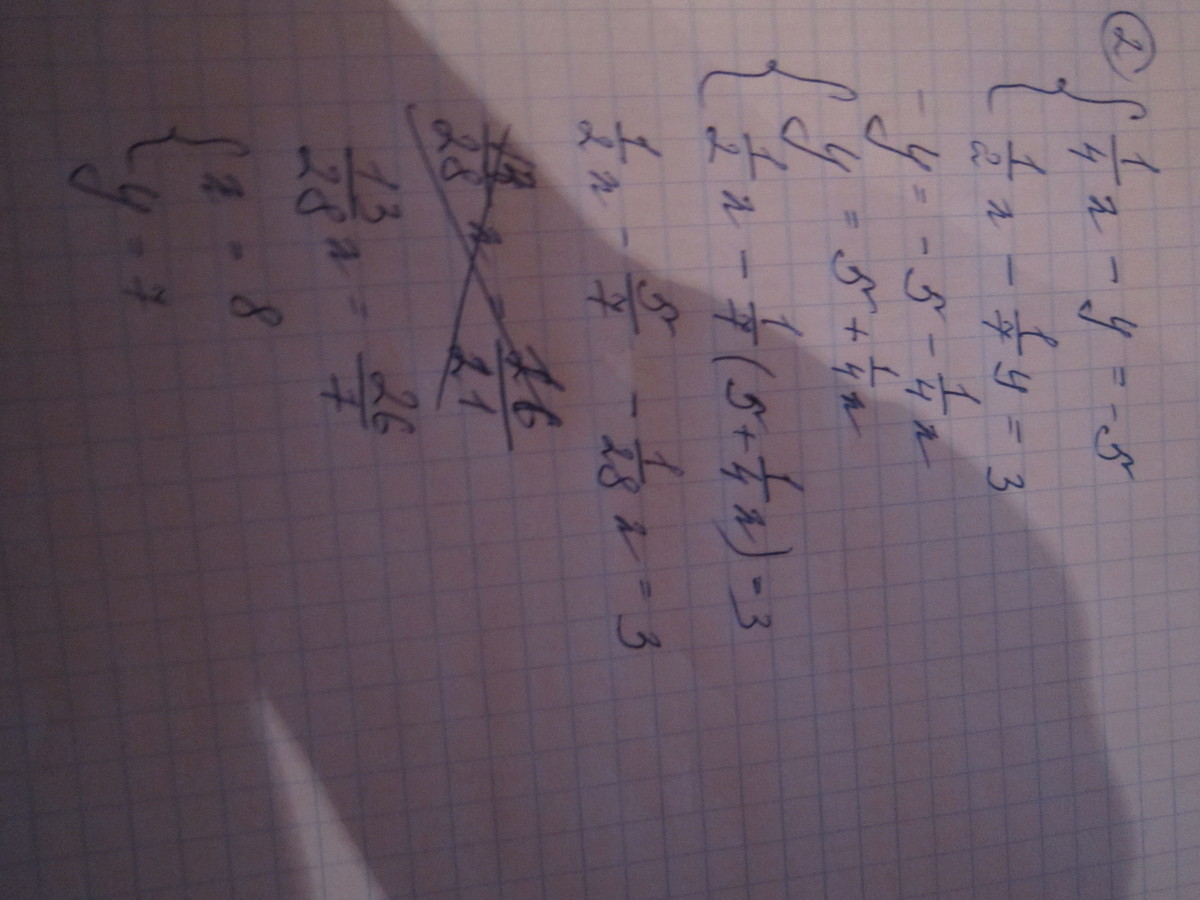 ②
{ 1/4 x - y = -5
{ 1/2 x - 1/7 y = 3
- y = -5 - 1/4 x
{ y = 5 + 1/4 x
{ 1/2 x - 1/7 (5 + 1/4 x) = 3
1/2 x - 5/7 - 1/28 x = 3
13/28 x = 26/7
{ x = 8
{ y = 7